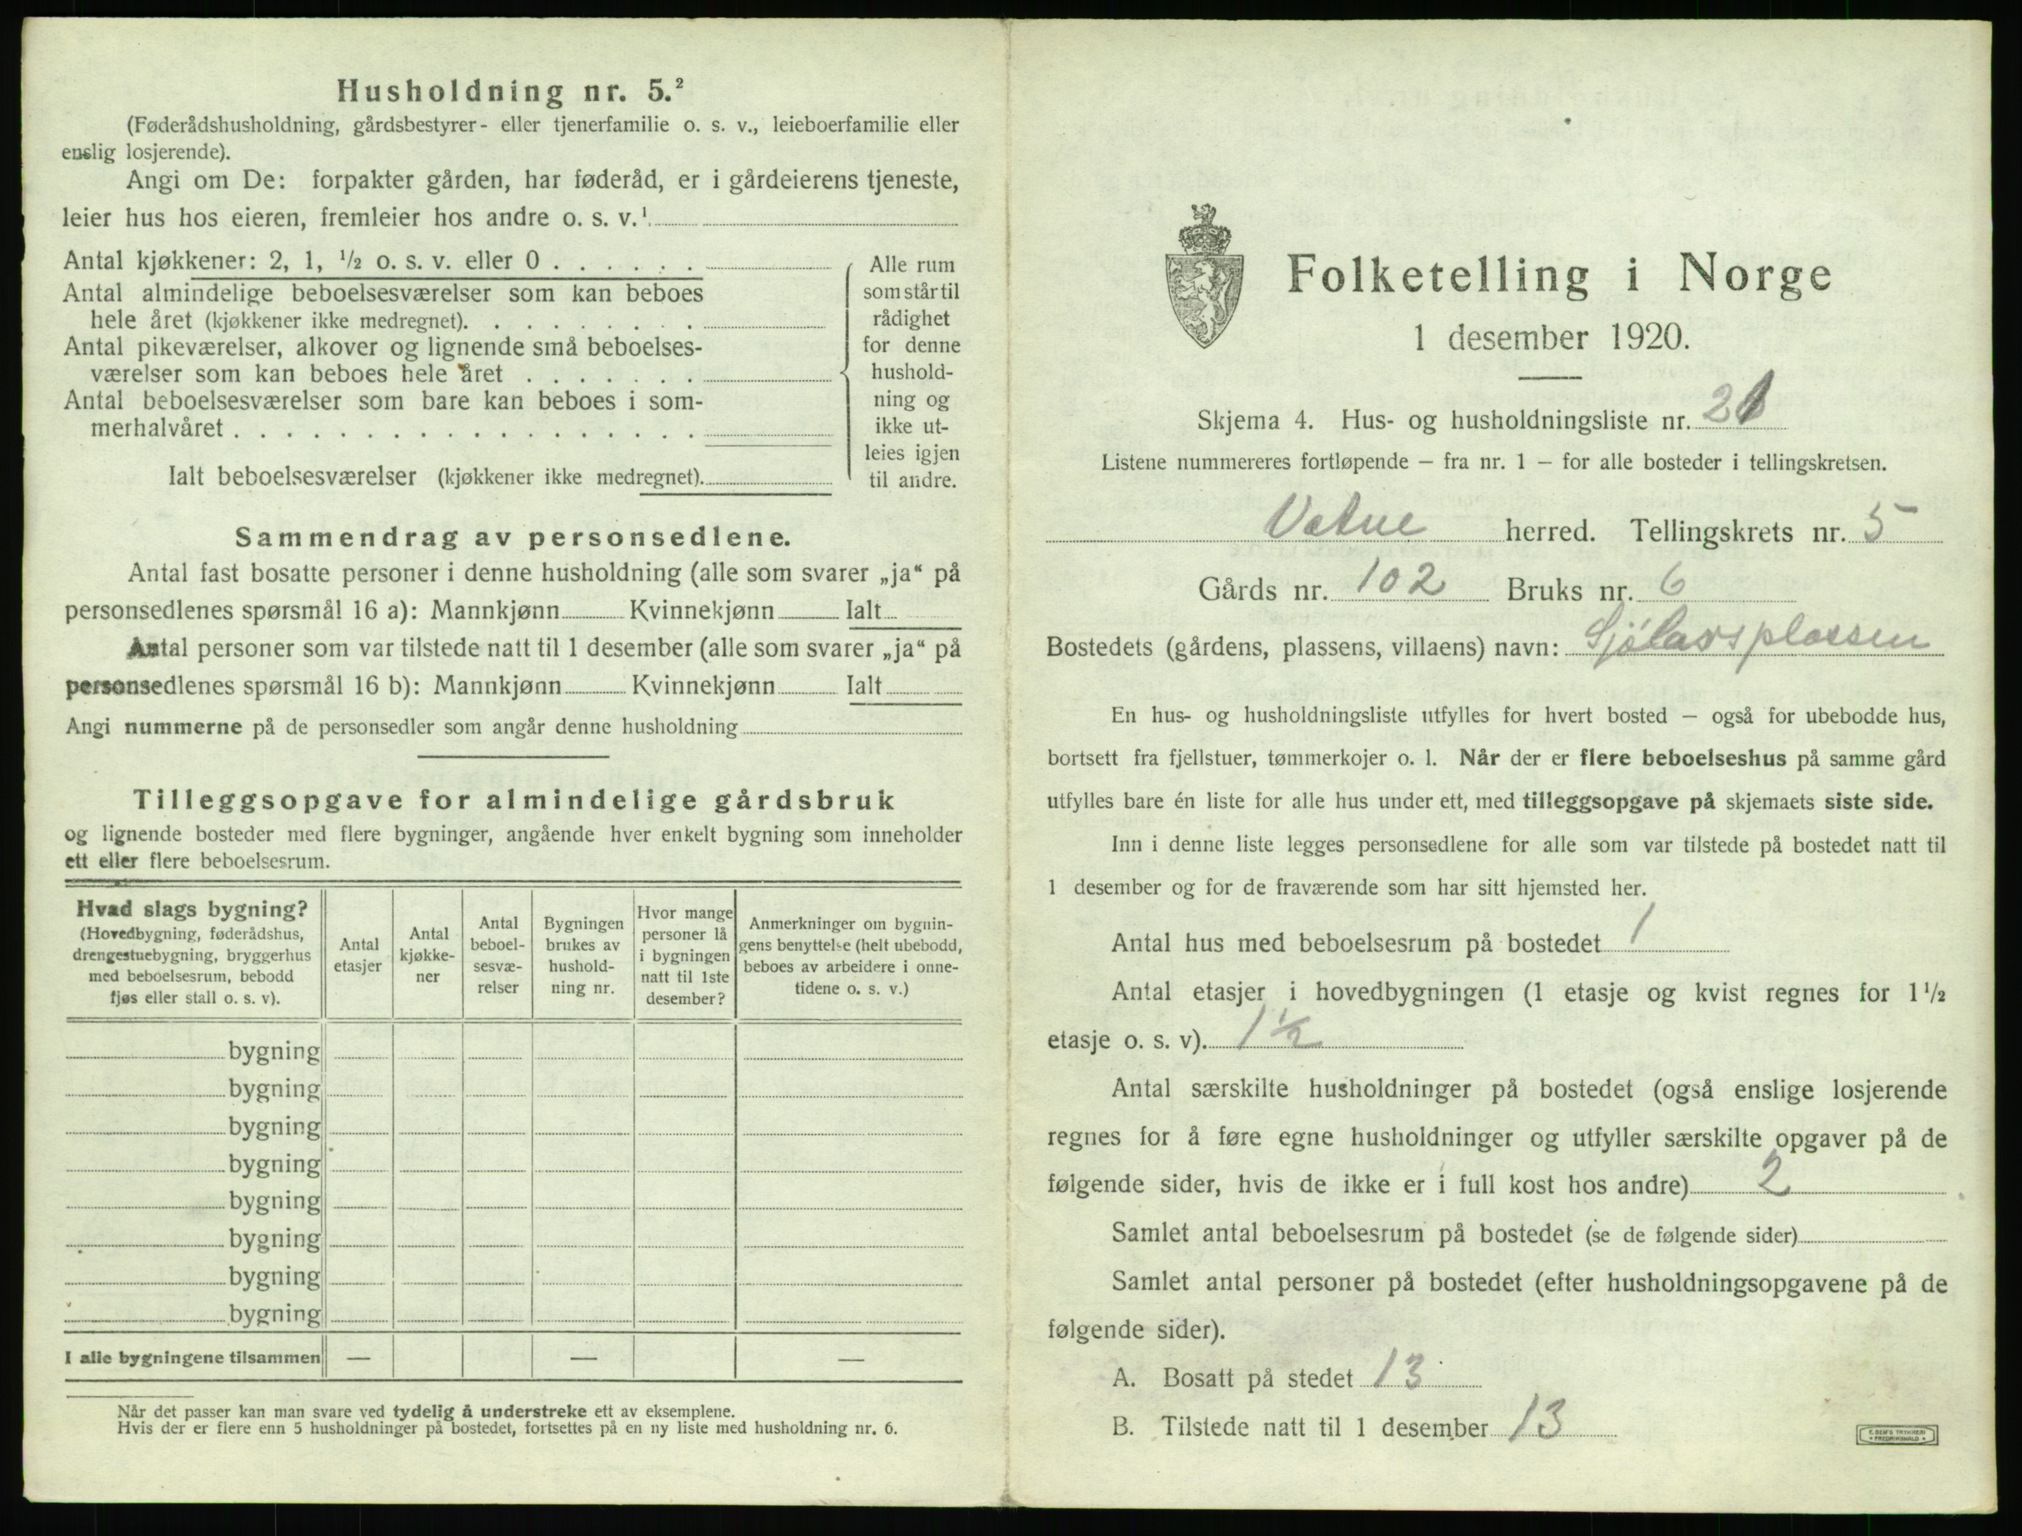 Husholdning nr. 5.²
(Føderådshusholdning, gårdsbestyrer- eller tjenerfamilie o. s. v., leieboerfamilie eller
enslig losjerende).
Angi om De: forpakter gården, har føderåd, er i gårdeierens tjeneste,
leier hus hos eieren, fremleier hos andre o. s. v.¹
Antal kjøkkener: 2, 1, ½ o. s. v. eller 0 . . . . . .
Antal almindelige beboelsesværelser som kan beboes
hele året (kjøkkener ikke medregnet). . . . . . . . .
Antal pikeværelser, alkover og lignende små beboelses-
værelser som kan beboes hele året . . . . . . .
Antal beboelsesværelser som bare kan beboes i som-
merhalvåret . . . . . . . . . . . . . . . . . .
Ialt beboelsesværelser (kjøkkener ikke medregnet).
Alle rum
som står til
rådighet
for denne
hushold-
ning og
ikke ut-
leies igjen
til andre.
Sammendrag av personsedlene.
Antal fast bosatte personer i denne husholdning (alle som svarer „ja“ på
personsedlenes spørsmål 16 a): Mannkjønn Kvinnekjønn Ialt
Antal personer som var tilstede natt til 1 desember (alle som svarer „ja“ på
personsedlenes spørsmål 16 b): Mannkjønn Kvinnekjønn Ialt
Angi nummerne på de personsedler som angår denne husholdning
Tilleggsopgave for almindelige gårdsbruk
og lignende bosteder med flere bygninger, angående hver enkelt bygning som inneholder
ett eller flere beboelsesrum.
Hvad slags bygning?
(Hovedbygning, føderådshus,
drengestuebygning, bryggerhus
med beboelsesrum, bebodd
fjøs eller stall o. s. v).
Antal
etasjer
Antal
kjøkke-
ner
Antal
beboel-
sesvæ-
relser
Bygningen
brukes av
hushold-
ning nr.
Hvor mange
personer lå
i bygningen
natt til 1ste
desember?
Anmerkninger om bygnin-
gens benyttelse (helt ubebodd,
beboes av arbeidere i onne-
tidene o. s. v.)
bygning
bygning
bygning
bygning
bygning
bygning
bygning
bygning
I alle bygningene tilsammen — — —
Når det passer kan man svare ved tydelig å understreke ett av eksemplene.
Hvis der er flere enn 5 husholdninger på bostedet, fortsettes på en ny liste med husholdning nr. 6.
Folketelling i Norge
1 desember 1920.
Skjema 4. Hus- og husholdningsliste nr. 21
Listene nummereres fortløpende — fra nr. 1 — for alle bosteder i tellingskretsen.
Vatne herred. Tellingskrets nr. 5
Gårds nr. 102 Bruks nr. 6
Bostedets (gårdens, plassens, villaens) navn:
En hus- og husholdningsliste utfylles for hvert bosted — også for ubebodde hus,
bortsett fra fjellstuer, tømmerkojer o. l. Når der er flere beboelseshus på samme gård
utfylles bare én liste for alle hus under ett, med tilleggsopgave på skjemaets siste side.
Inn i denne liste legges personsedlene for alle som var tilstede på bostedet natt til
1 desember og for de fraværende som har sitt hjemsted her.
Antal hus med beboelsesrum på bostedet 1
Antal etasjer i hovedbygningen (1 etasje og kvist regnes for 1½
etasje o. s. v). 1½
Antal særskilte husholdninger på bostedet (også enslige losjerende
regnes for å føre egne husholdninger og utfyller særskilte opgaver på de
følgende sider, hvis de ikke er i full kost hos andre) 2
Samlet antal beboelsesrum på bostedet (se de følgende sider)
Samlet antal personer på bostedet (efter husholdningsopgavene på de
følgende sider).
A. Bosatt på stedet 13
B. Tilstede natt til 1 desember 13